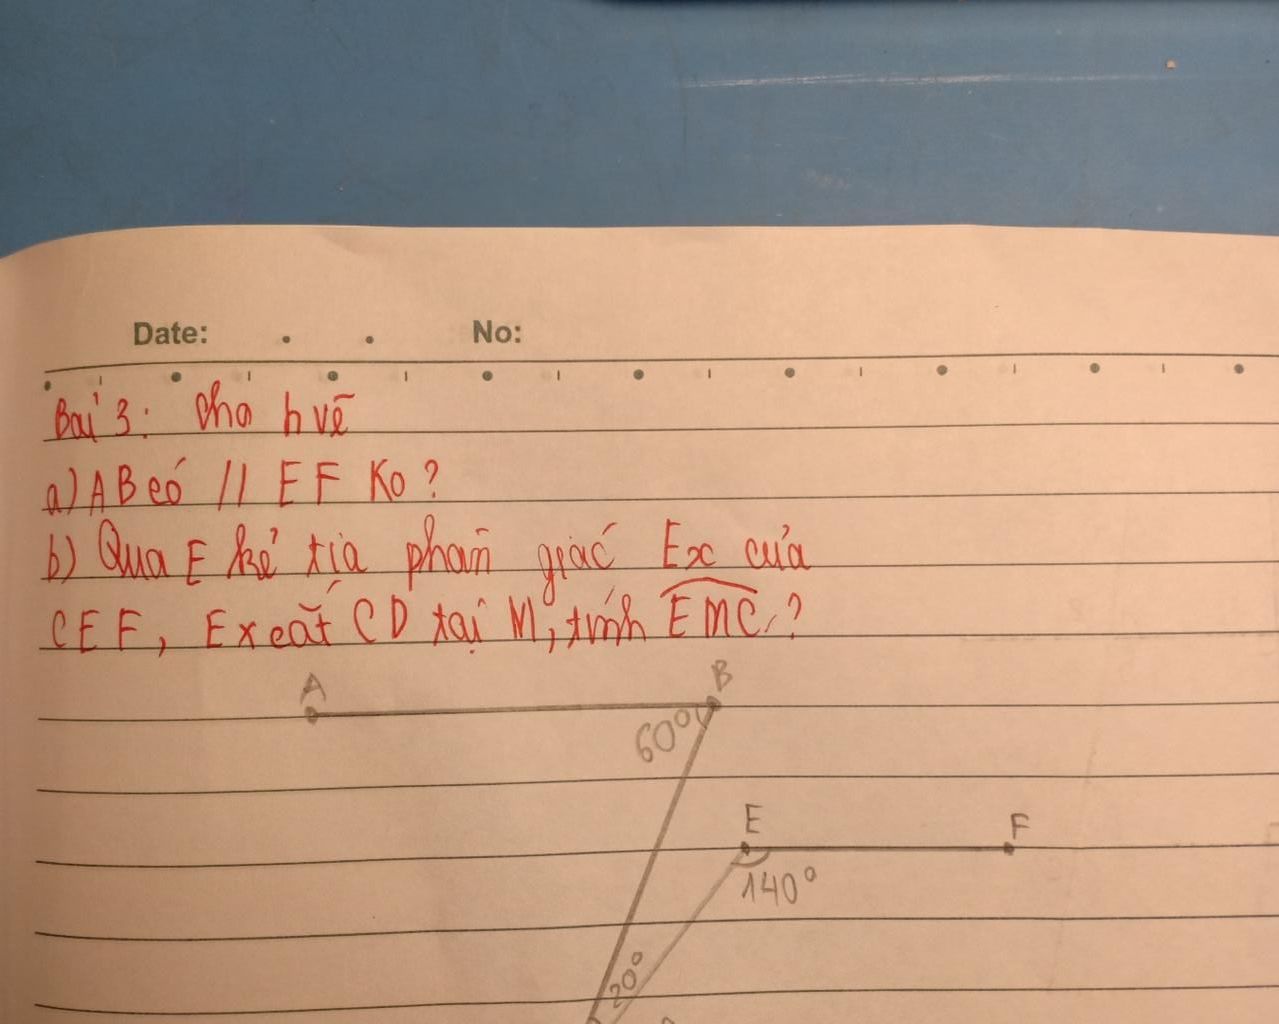 Date: . . No:
Bài 3: Cho h vẽ
a) AB có // EF Ko ?
b) Qua E kẻ tia phân giác Ex của
CEF, Ex cắt CD tại M, tính EMC ?
A
B
60°
E
F
140°
20°